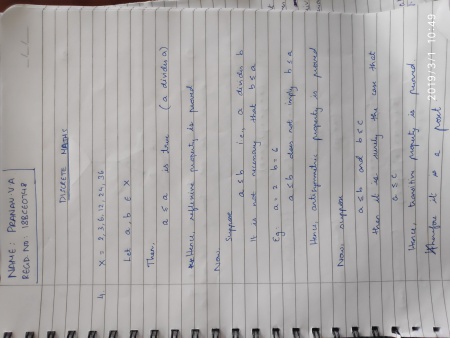 NAME: PRANAV V A
REGD. NO: 18BCE0748
DISCRETE MATHS
4. X = 2, 3, 6, 12, 24, 36
Let a, b ∈ X
Then,
a ≤ a is true (a divides a)
Hence, reflexive property is proved
Now,
Suppose
a ≤ b i.e., a divides b
It is not necessary that b ≤ a
Eg a = 2 b = 6
a ≤ b does not imply b ≤ a
Hence, antisymmetric property is proved
Now, suppose
a ≤ b and b ≤ c
then it is surely the case that
a ≤ c
Hence, transitive property is proved
Therefore it is a poset
2019/3/1 10:49